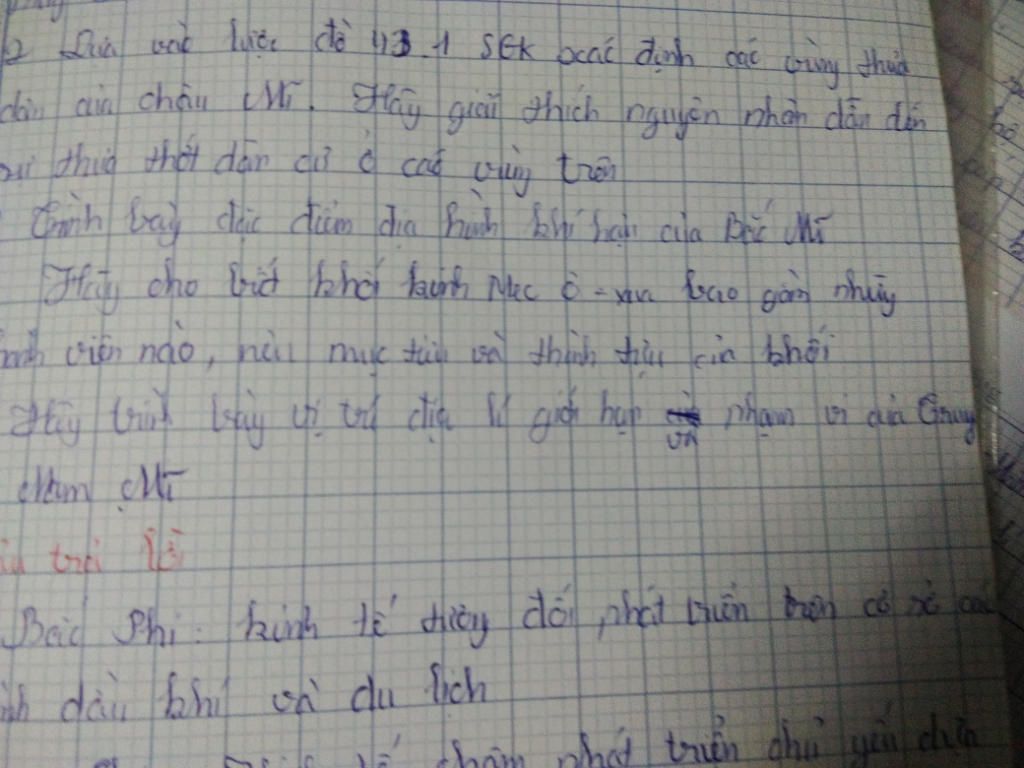 2 Dựa vào lược đồ 43.1 SGK xác định các vùng thưa
dân của châu Mĩ. Hãy giải thích nguyên nhân dẫn đến
sự thưa thớt dân cư ở các vùng trên
Trình bày đặc điểm địa hình khí hậu của Bắc Mĩ
Hãy cho biết khối kinh Mec ô-xua bao gồm những
thành viên nào, nêu mục tiêu và thành tựu của khối
Hãy trình bày vị trí địa lí giới hạn và phạm vi của Trung
Nam Mĩ
trả lời
Bắc Phi: kinh tế tương đối phát triển trên cơ sở các
dầu khí và du lịch
tế chậm phát triển chủ yếu dựa